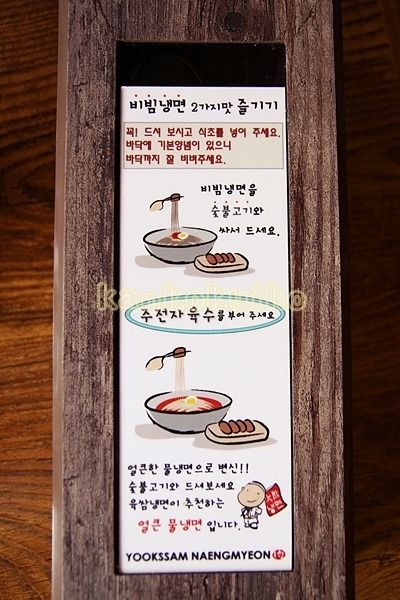 비빔냉면 2가지맛 즐기기
꼭! 드셔 보시고 식초를 넣어 주세요.
바닥에 기본양념이 있으니
바닥까지 잘 비벼주세요.
비빔냉면을
숯불고기와
싸서 드세요.
kamkokaniko
주전자육수를 부어 주세요
얼큰한 물냉면으로 변신!!
숯불고기와 드셔보세요
육쌈냉면이 추천하는
얼큰 물냉면입니다.
육쌈
냉면
YOOKSSAM NAENGMYEON